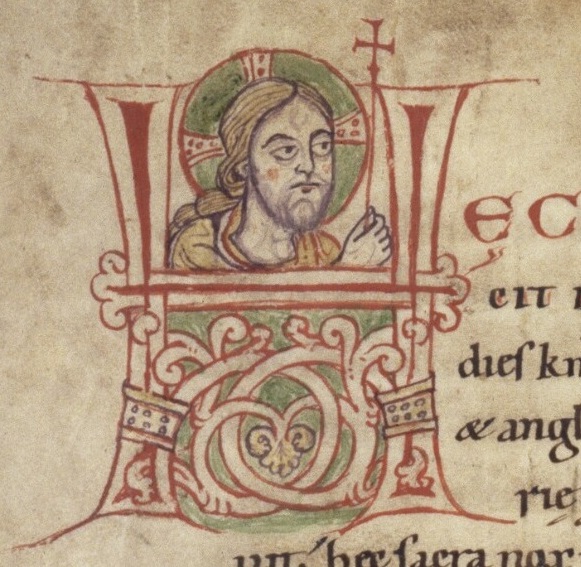 HEC
eit
dieſ kr
& angl
rie
hec ſacra nox